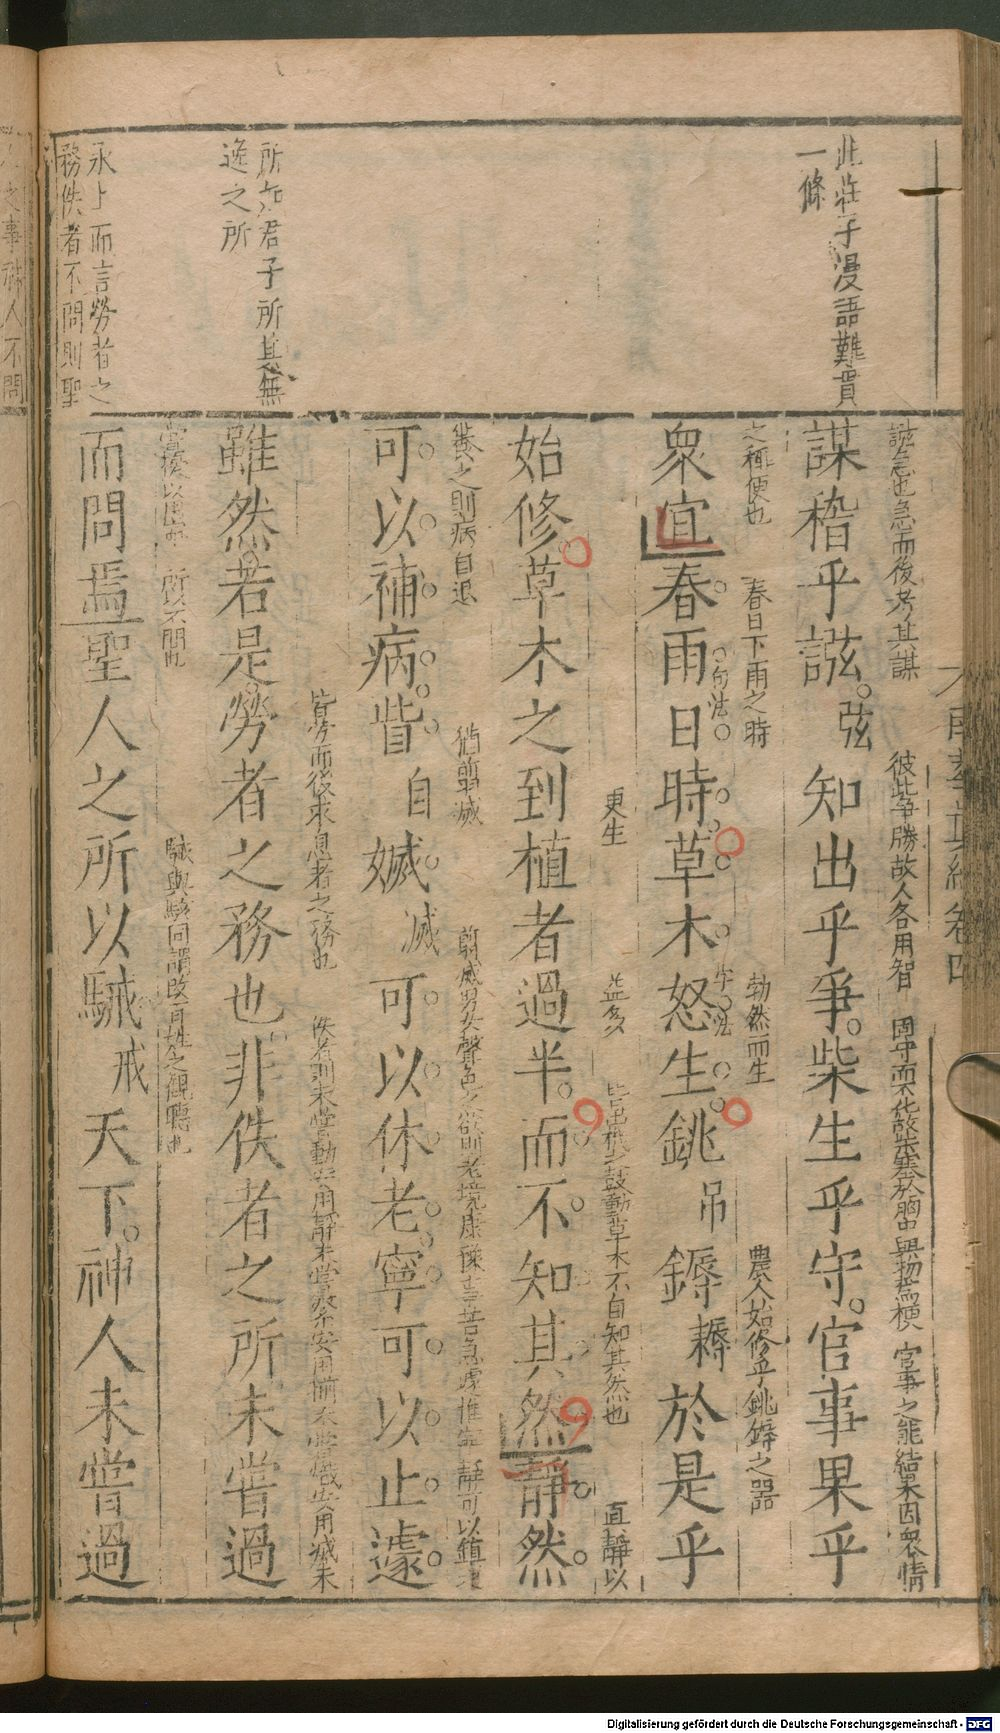 此莊子漫語難貫
一條
所以君子所其無
逸之所
承上而言勞者之
務佚者不問則聖
誸急也急而後考其謀 彼此爭勝故人各用智 固守而不化故柴塞於胸中與物為梗 官事之能結果因衆情
謀稽乎誸弦知出乎爭柴生乎守官事果乎
之種便也 春日下雨之時 勃然而生 農人始修乎銚鎒之器
衆宜春雨日時草木怒生銚吊鎒耨於是乎
句法
字法
更生 並多 皆由機之鼓動草木不自知其然也 直靜以
始修草木之到植者過半而不知其然靜然
養之則病自退 猶翦滅 翦滅男女聲色之欲則老境康 靜可以鎮
可以補病眥自搣滅可以休老寧可以止遽
皆勞而後求息者之務也 佚者則未嘗動安用靜未嘗 安用揃未嘗 安用滅未
雖然若是勞者之務也非佚者之所未嘗過
嘗擾以 所以不問也 駴與駭同謂改百姓之觀聽也
而問焉聖人之所以駴戒天下神人未嘗過
之事神人不問
卷四
Digitalisierung gefördert durch die Deutsche Forschungsgemeinschaft - DFG